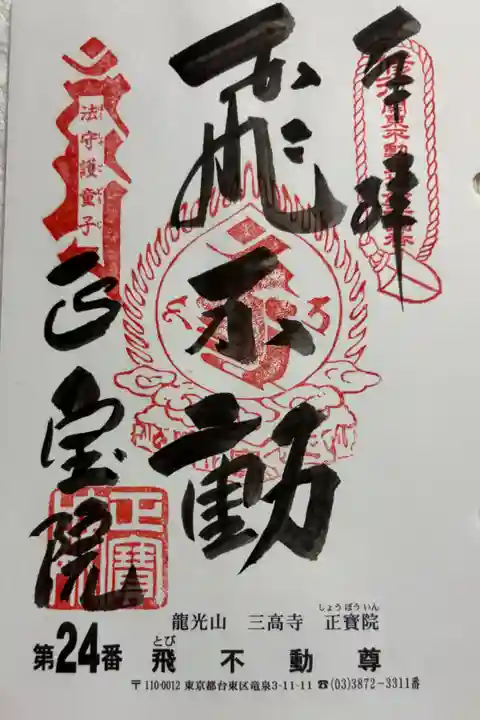 奉拝
飛不動
正宝院
法守護童子
正寶院
龍光山 三高寺 正寳院
しょうぼういん
第24番 飛不動尊
とび
〒110-0012 東京都台東区竜泉3-11-11 ☎(03)3872-3311番